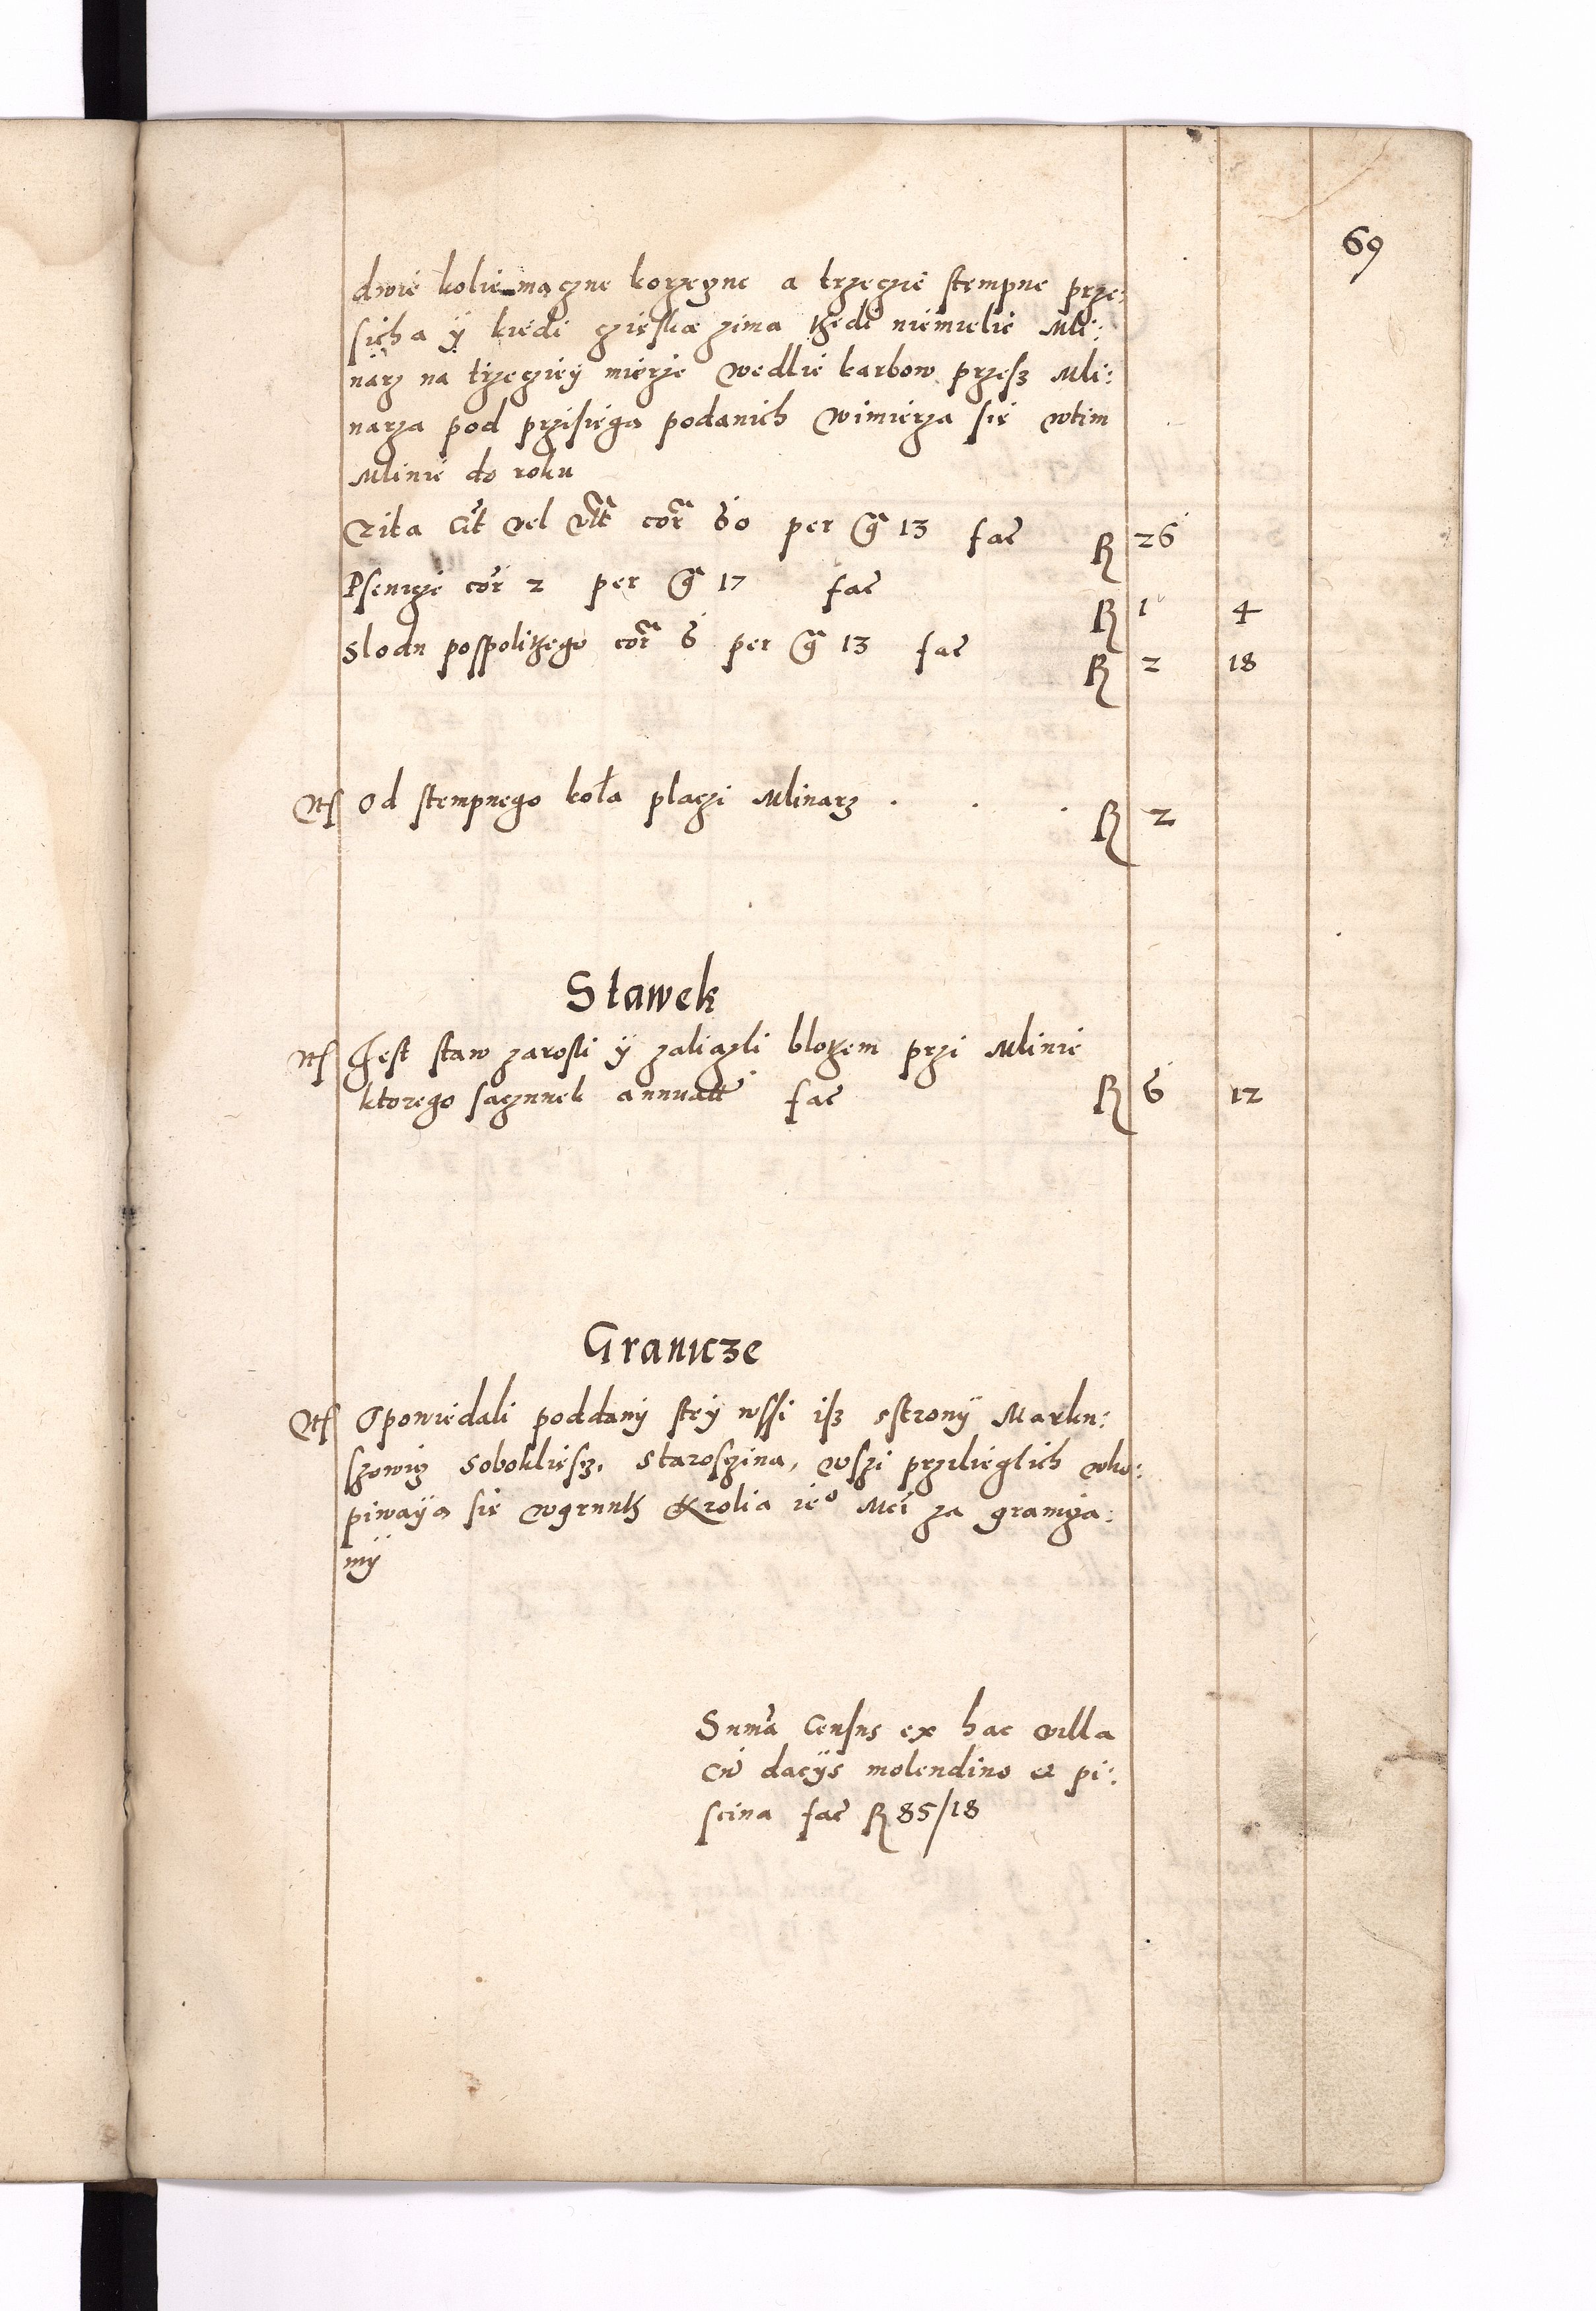 69
dwie kolie mączne korzeczne a trzeczie stempne prze:
sicha y kiedi czieska zima tzedi niemielie Mli:
narz na trzecziey mierze wedlie karbow przesz Mli:
narza pod przisiega podanich wimierza sie wtim
Mlinie do roku
Zita cit vel vlt cor 60 per g 13 fac R 26
Psenicze cor 2 per g 17 fac R 1 4
Slodu pospolitzego cor 6 per g 13 fac R 2 18
Od stempnego koła placzi Mlinarz . . . R 2
Stawek
Jest staw zarosli y zaliazli blotzem przi Mlinie
ktorego sacunek annuatt fac R 6 12
Granicze
Opowiedali poddany stey wssi isz sstrony Marku:
szowicz Sobokliesz, Staroszina, wszi przilieglich wko:
piwaya sie wgruntz Krolia ieo Mci za granicza:
my
Suma Census ex hac villa
cu dacÿs molendino et pi:
scina fac R 85/18